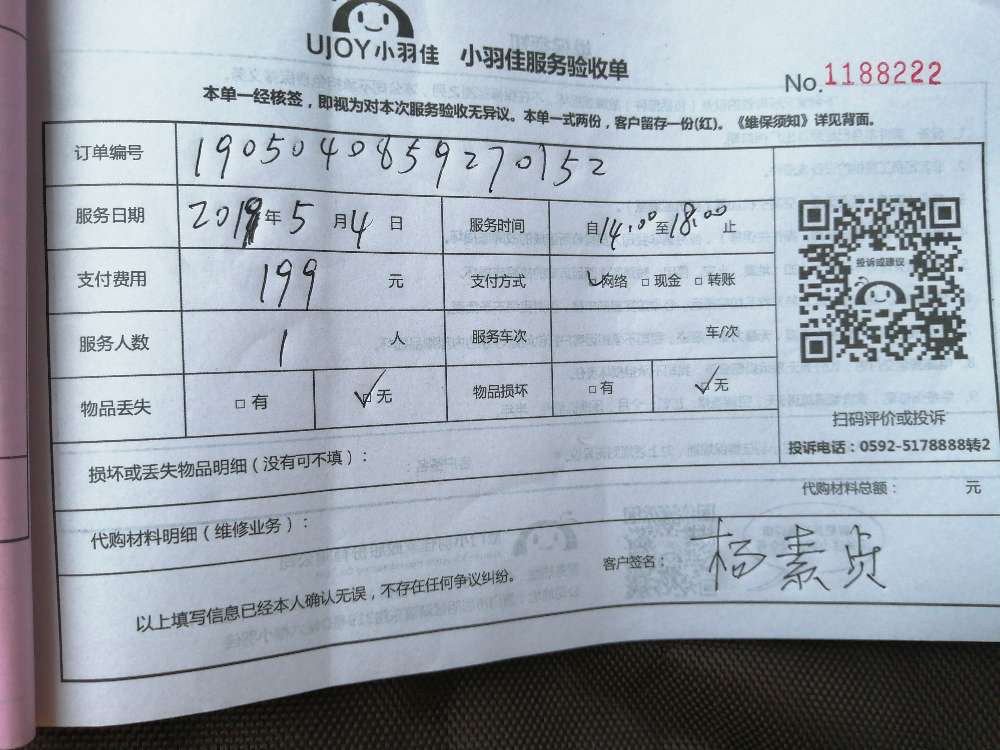 UJOY小羽佳 小羽佳服务验收单
No.1188222
本单一经核签，即视为对本次服务验收无异议。本单一式两份，客户留存一份(红)。《维保须知》详见背面。
订单编号 1905040859270152
服务日期 2019年5月4日 服务时间 自14:00至18:00止
支付费用 199 元 支付方式 ✓网络 □现金 □转账
服务人数 1 人 服务车次 车/次
物品丢失 □有 ✓□无 物品损坏 □有 ✓□无
投诉或建议
扫码评价或投诉
投诉电话：0592-5178888转2
损坏或丢失物品明细（没有可不填）：
代购材料总额： 元
代购材料明细（维修业务）：
以上填写信息已经本人确认无误，不存在任何争议纠纷。 客户签名： 杨素贞